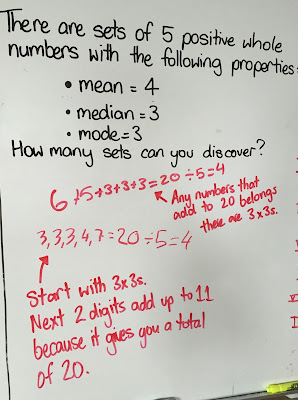 There are sets of 5 positive whole
numbers with the following properties:
• mean = 4
• median = 3
• mode = 3
How many sets can you discover?
6+5+3+3+3=20÷5=4
Any numbers that
add to 20 belongs
there are 3x3s.
3,3,3,4,7=20÷5=4
Start with 3x3s.
Next 2 digits add up to 11
because it gives you a total
of 20.